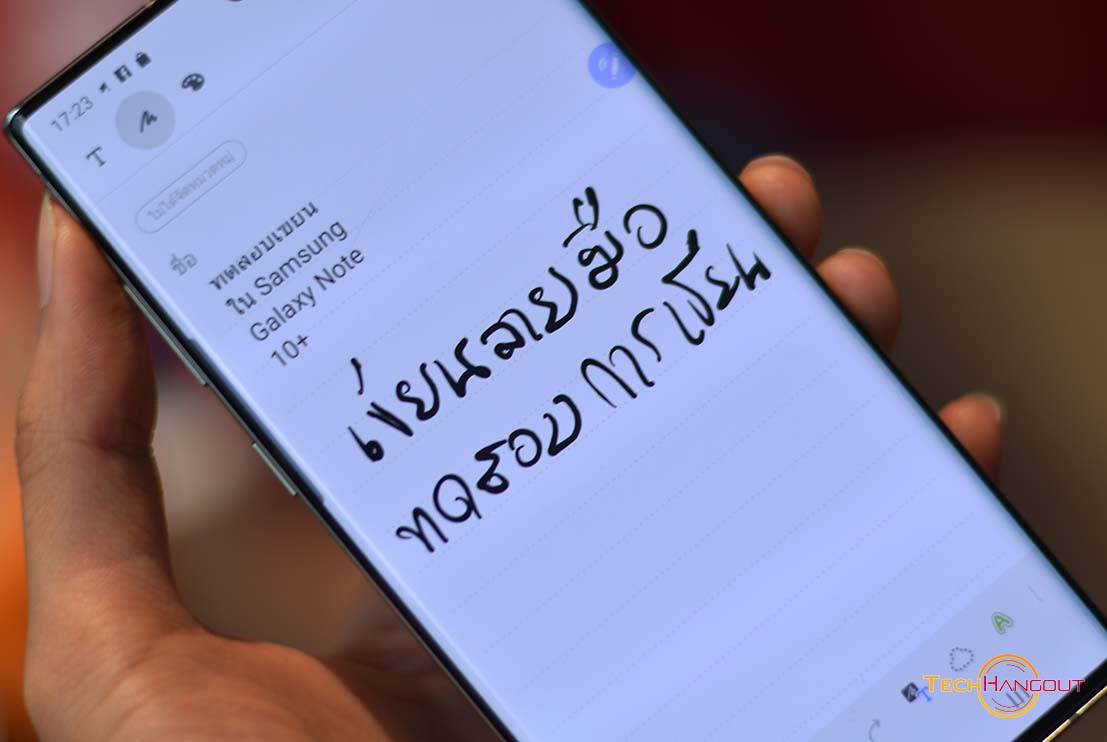 17:23
T
ไม่ได้จัดหมวดหมู่
ชื่อ
ทดสอบเขียน
ใน Samsung
Galaxy Note
10+
เขียนลายมือ
ทดสอบ การเขียน
A
T
TECHHANGOUT